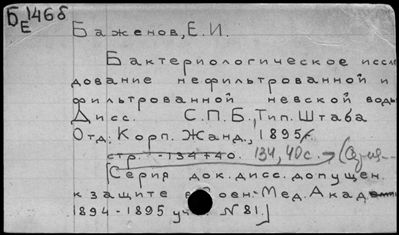 БЕ 1468
Баженов, Е.И.
Бактериологическое иссле
дование нефильтрованной и
фильтрованной невской воды
Дисс. С.П.Б., Тип. Штаба
Отд. Корп. Жанд., 1895г.
стр. - 134+40. 134, 40 с. → (Серия...
[Серия док. дисс. допущен.
к защите в Воен-Мед. Акад
1894-1895 уч. N 81.]